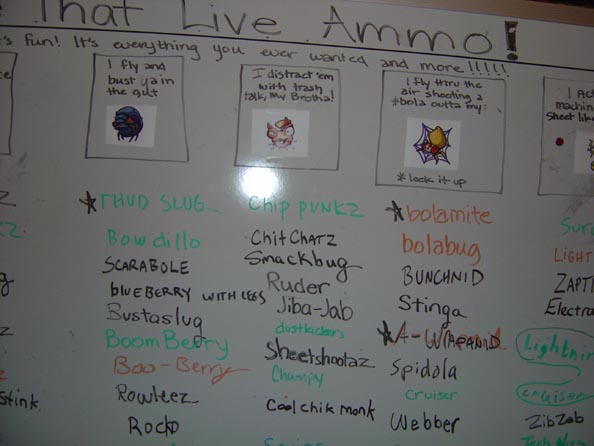 That Live Ammo!
's fun! It's everything you ever wanted and more!!!!!
I fly and
bust ya in
the gut
I distract 'em
with trash
talk, my Brotha!
I fly thru the
air shooting a
*bola outta my:
*look it up
I Act
machin
Sheet lik
*THUD SLUG
Bowdillo
SCARABOLE
BlUEBERRY WITH LEGS
Bustaslug
BoomBerry
Boo-Berry
Rowleez
Rocko
Chip punkz
ChitChatz
Smackbug
Ruder
Jiba-Jab
dustkickers
Sheetshootaz
Chumpy
Coolchik monk
*bolamite
bolabug
BUNCHNID
Stinga
*A-WRAPANID
Spidola
Cruiser
Webber
Sur
LIGHT
ZAPT
Electro
Lightnin
cruiser
ZibZab
stink